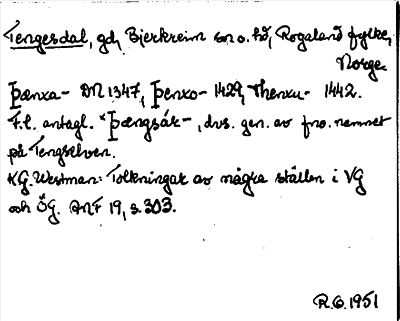 Tengesdal, gd, Bjerkreim sn o. hd, Rogaland fylke,
Norge.
Þænxa- DN 1347, Þenxo- 1429, Thenxu- 1442.
F.l. antagl. *Þængsár-, dvs. gen. av fno. namnet
på Tengselven.
KG. Westman: Tolkningar av några ställen i VG
och ÖG. ANF 19, s. 303.
R.G. 1951